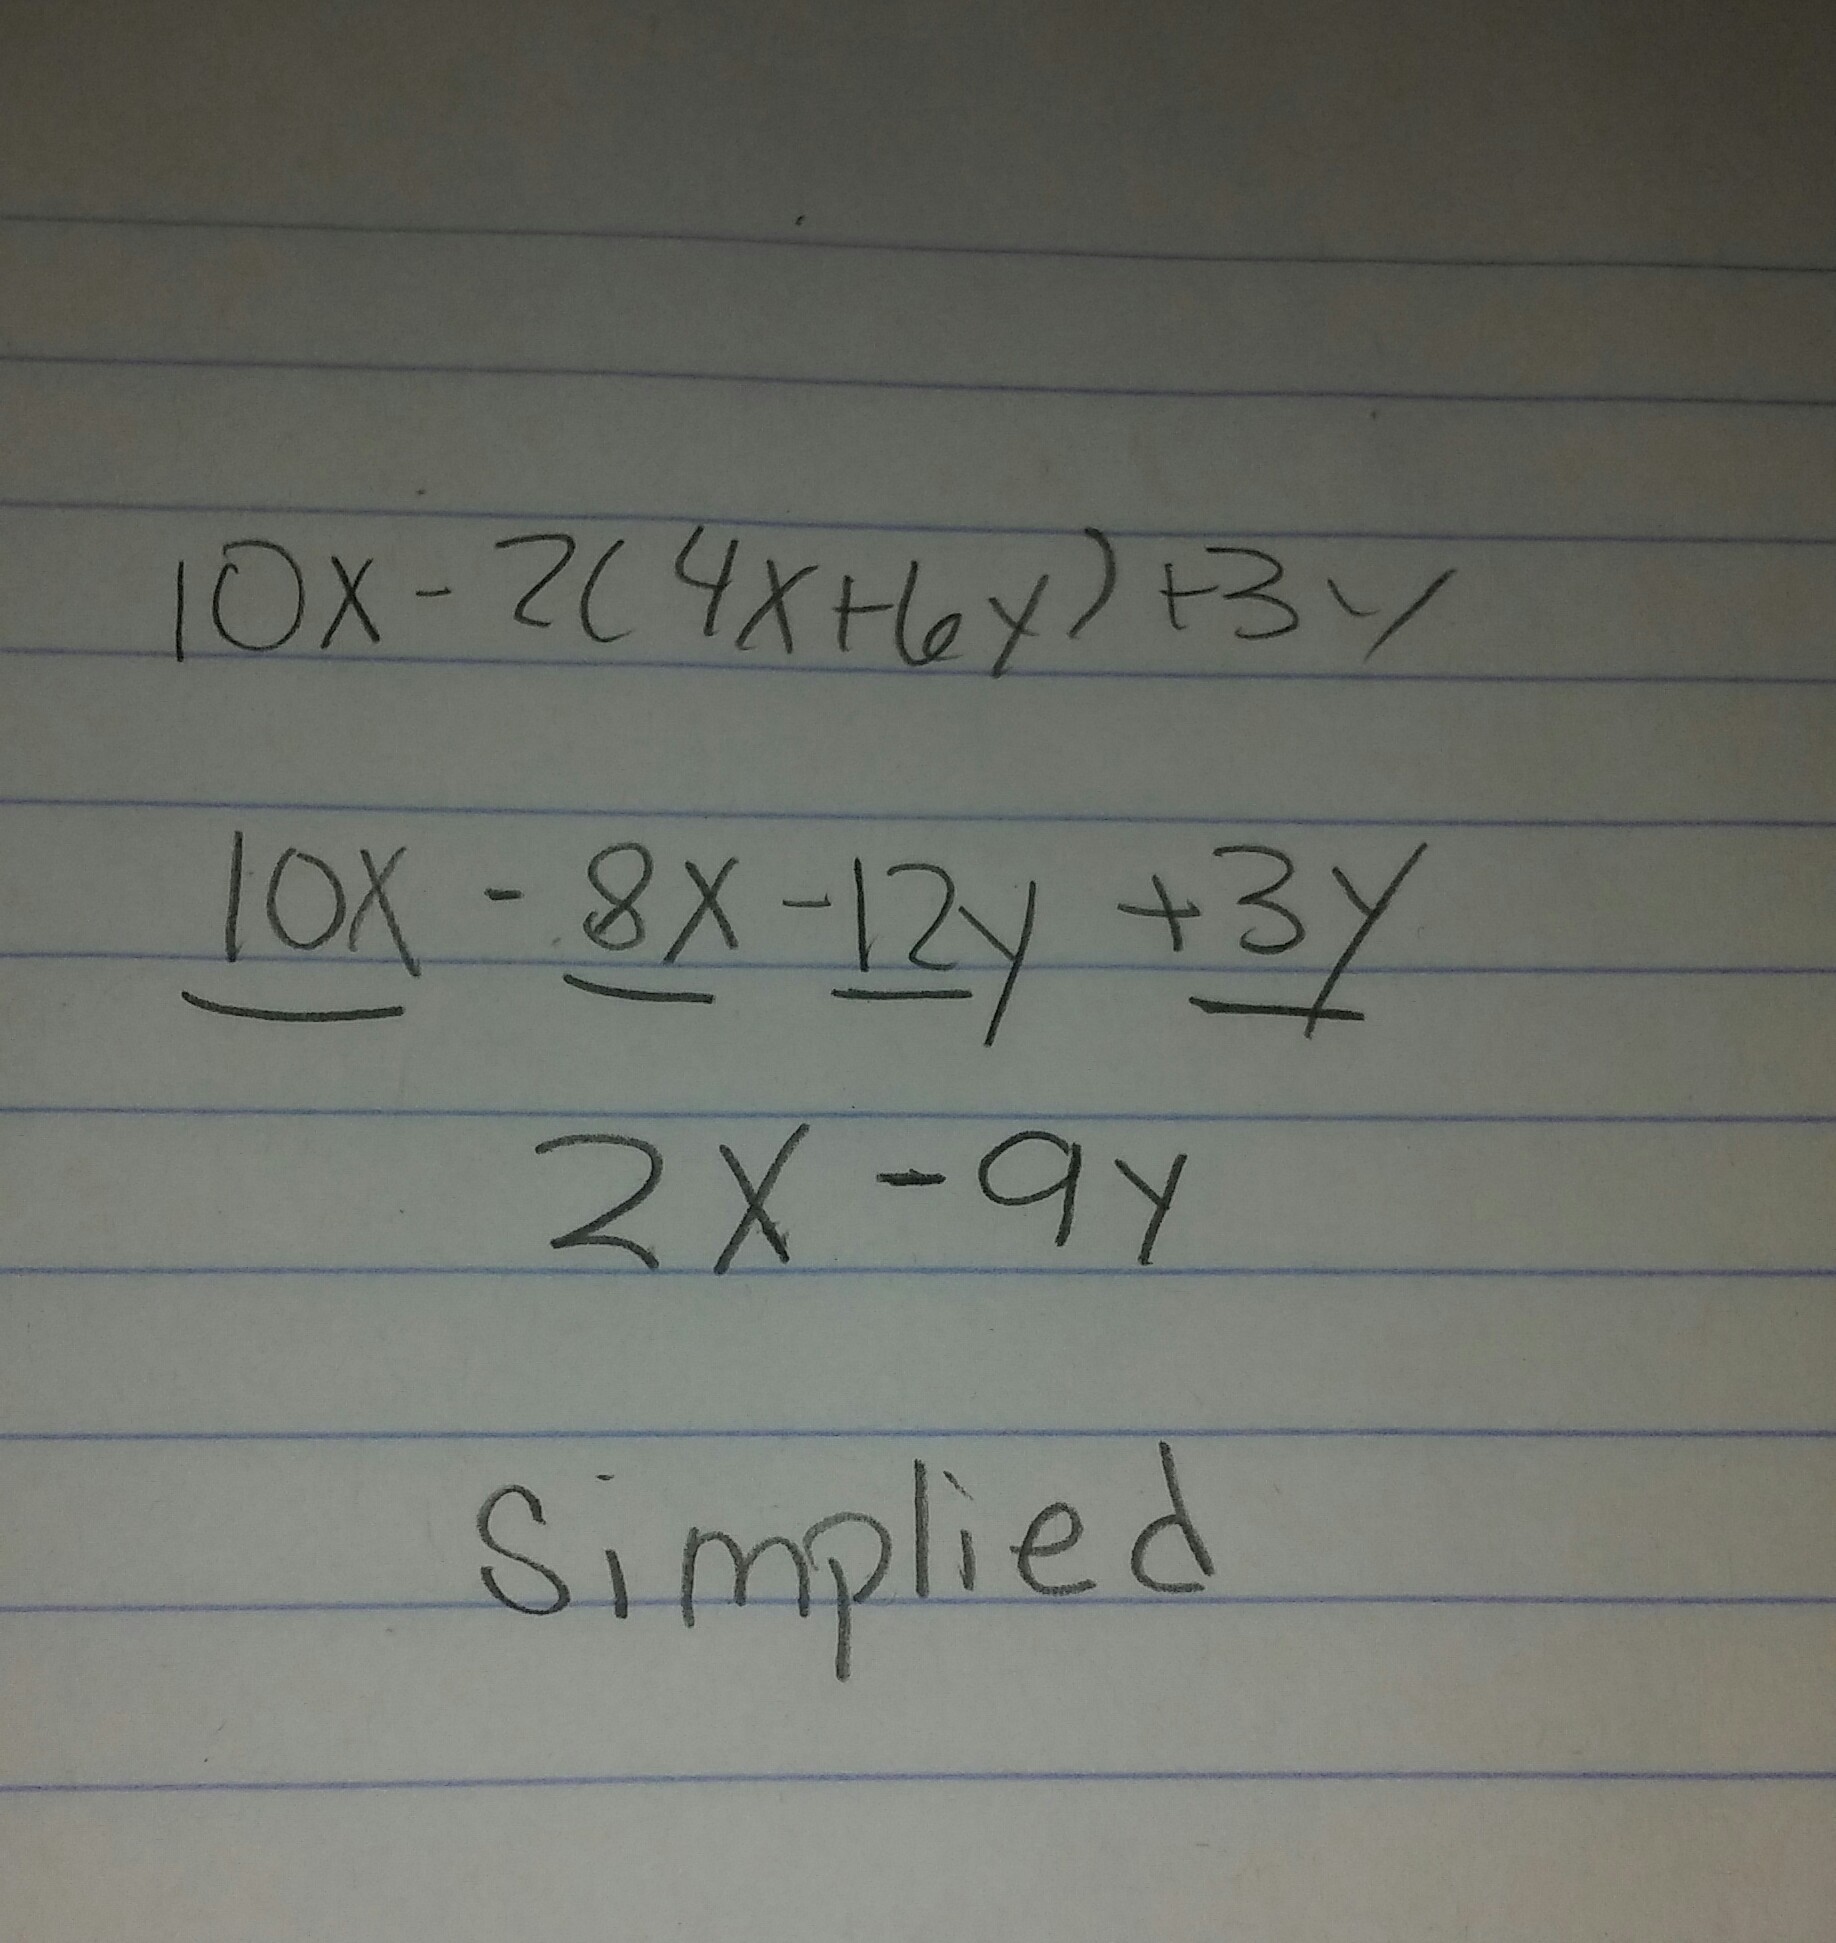 10x - 2(4x+6y) +3y
10x - 8x -12y +3y
2x - 9y
Simplied